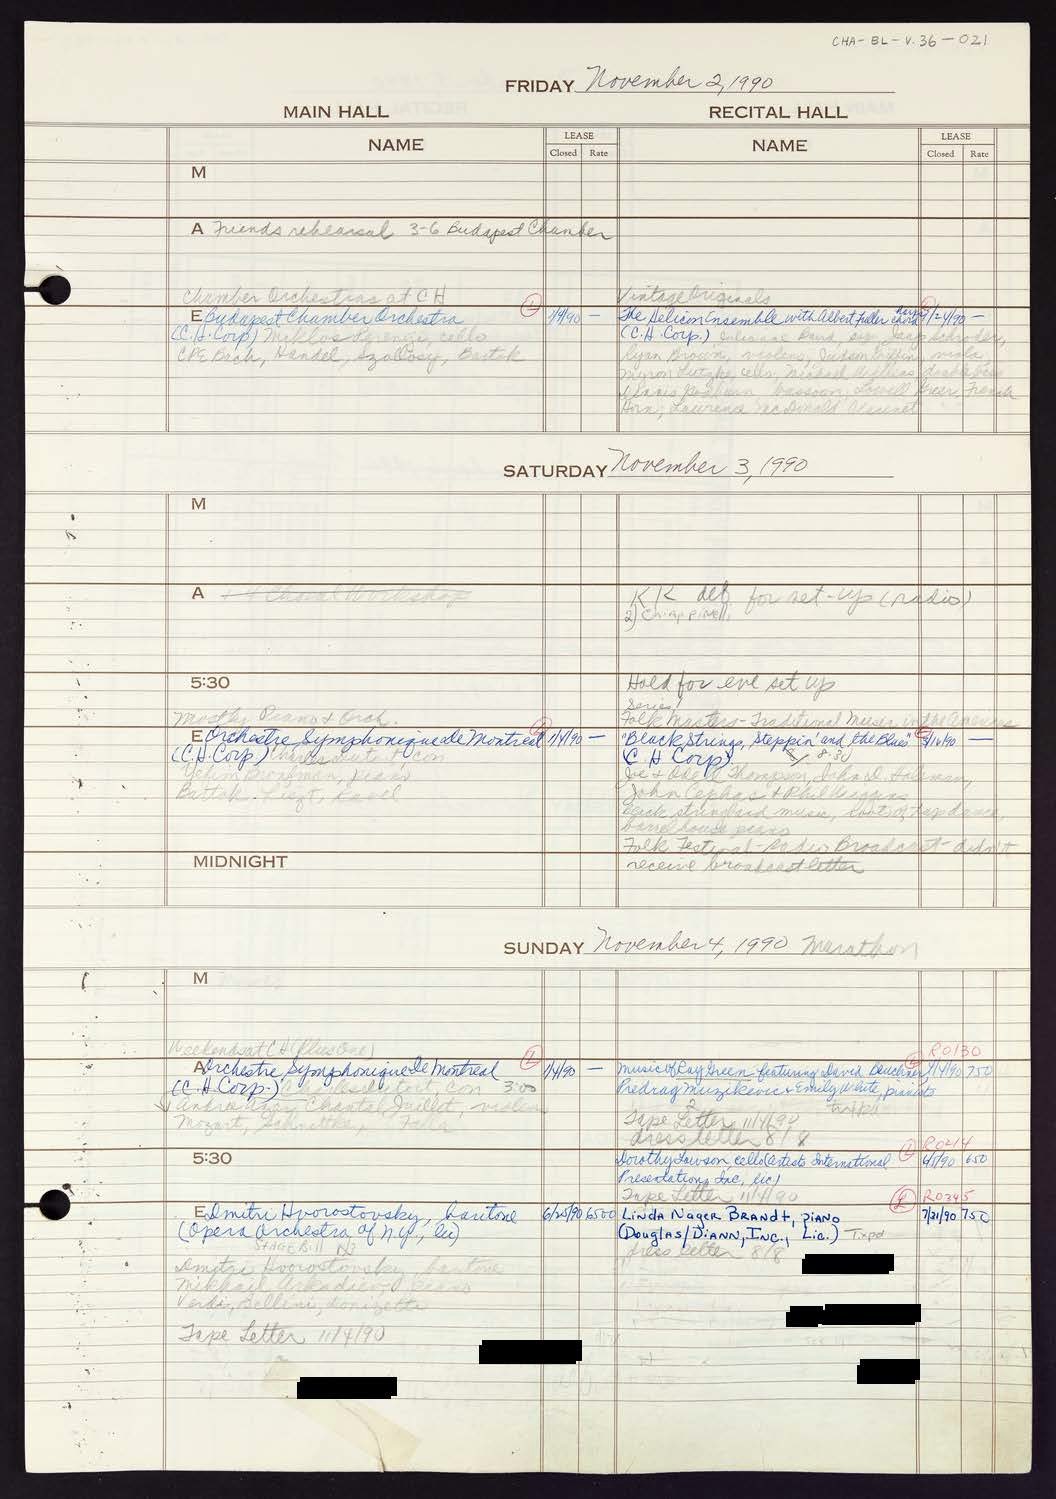 CHA-BL-V.36-021
FRIDAY November 2, 1990
MAIN HALL
RECITAL HALL
NAME
LEASE
Closed Rate
NAME
LEASE
Closed Rate
M
A Friends rehearsal 3-6 Budapest Chamber
Chamber Orchestras at CH
E Budapest Chamber Orchestra L 1/4/90 —
(C.H. Corp) Miklos Perenyi, cello
CPE Bach, Handel, Szollosy, Bartok
Vintage Originals
The Helicon Ensemble with Albert Fuller 1/24/90 —
(C.H. Corp.)
Ryan Brown, violins, Judson Griffin, viola
Myron Lutzke, cello, Michael Willens double bass
Dennis Godburn bassoon, Lowell Greer, French
Horn, Lawrence McDonald Clarinet
SATURDAY November 3, 1990
M
A Choral Workshop
KK def. for set-up (radio)
2) Chiappinelli
5:30
Hold for eve set up
Mostly Piano & Orch.
E Orchestre Symphonique de Montreal L 1/4/90 —
(C.H. Corp) Charles Dutoit con
Yefim Bronfman, piano
Bartok, Liszt, Ravel
Series:
Folk Masters - Traditional Music in the Americas
"Black Strings, Steppin' and the Blues" L 3/16/90 —
(C H Corp) 8:30
Joe & Odell Thompson, John D. Holeman,
John Cephas & Phil Wiggins
black stringband music, roots of tap dance,
barrelhouse piano
Folk Festival - Radio Broadcast - didn't
receive broadcast letter
MIDNIGHT
SUNDAY November 4, 1990 Marathon
M
Weekends at CH (Plus One)
A Orchestre Symphonique de Montreal L 1/4/90 —
(C.H. Corp.) Charles Dutoit, con 3:00
Chantal Juillet, violin
Mozart, Schnittke, Falla
R0130
Music of Ray Green featuring David Deuchner L 1/4/90 750
Predrag Muzikevic & Emily White, pianists
Tape Letter 11/4/90
dress letter 8/8
5:30
R0214
Dorothy Lawson cello (Artists International L 6/1/90 650
Presentations, Inc, lic)
Tape Letter 11/4/90
E Dmitri Hvorostovsky, baritone 6/25/90 6500
(Opera Orchestra of N.Y., lic)
Stage Bill
Dmitri Hvorostovsky, baritone
Mikhail Arkadiev, piano
Verdi, Bellini, Donizetti
Tape Letter 11/4/90
L R0345
Linda Nager Brandt, piano 7/31/90 750
(Douglas/Diann, Inc., Lic.) Txpd
dress letter 8/8